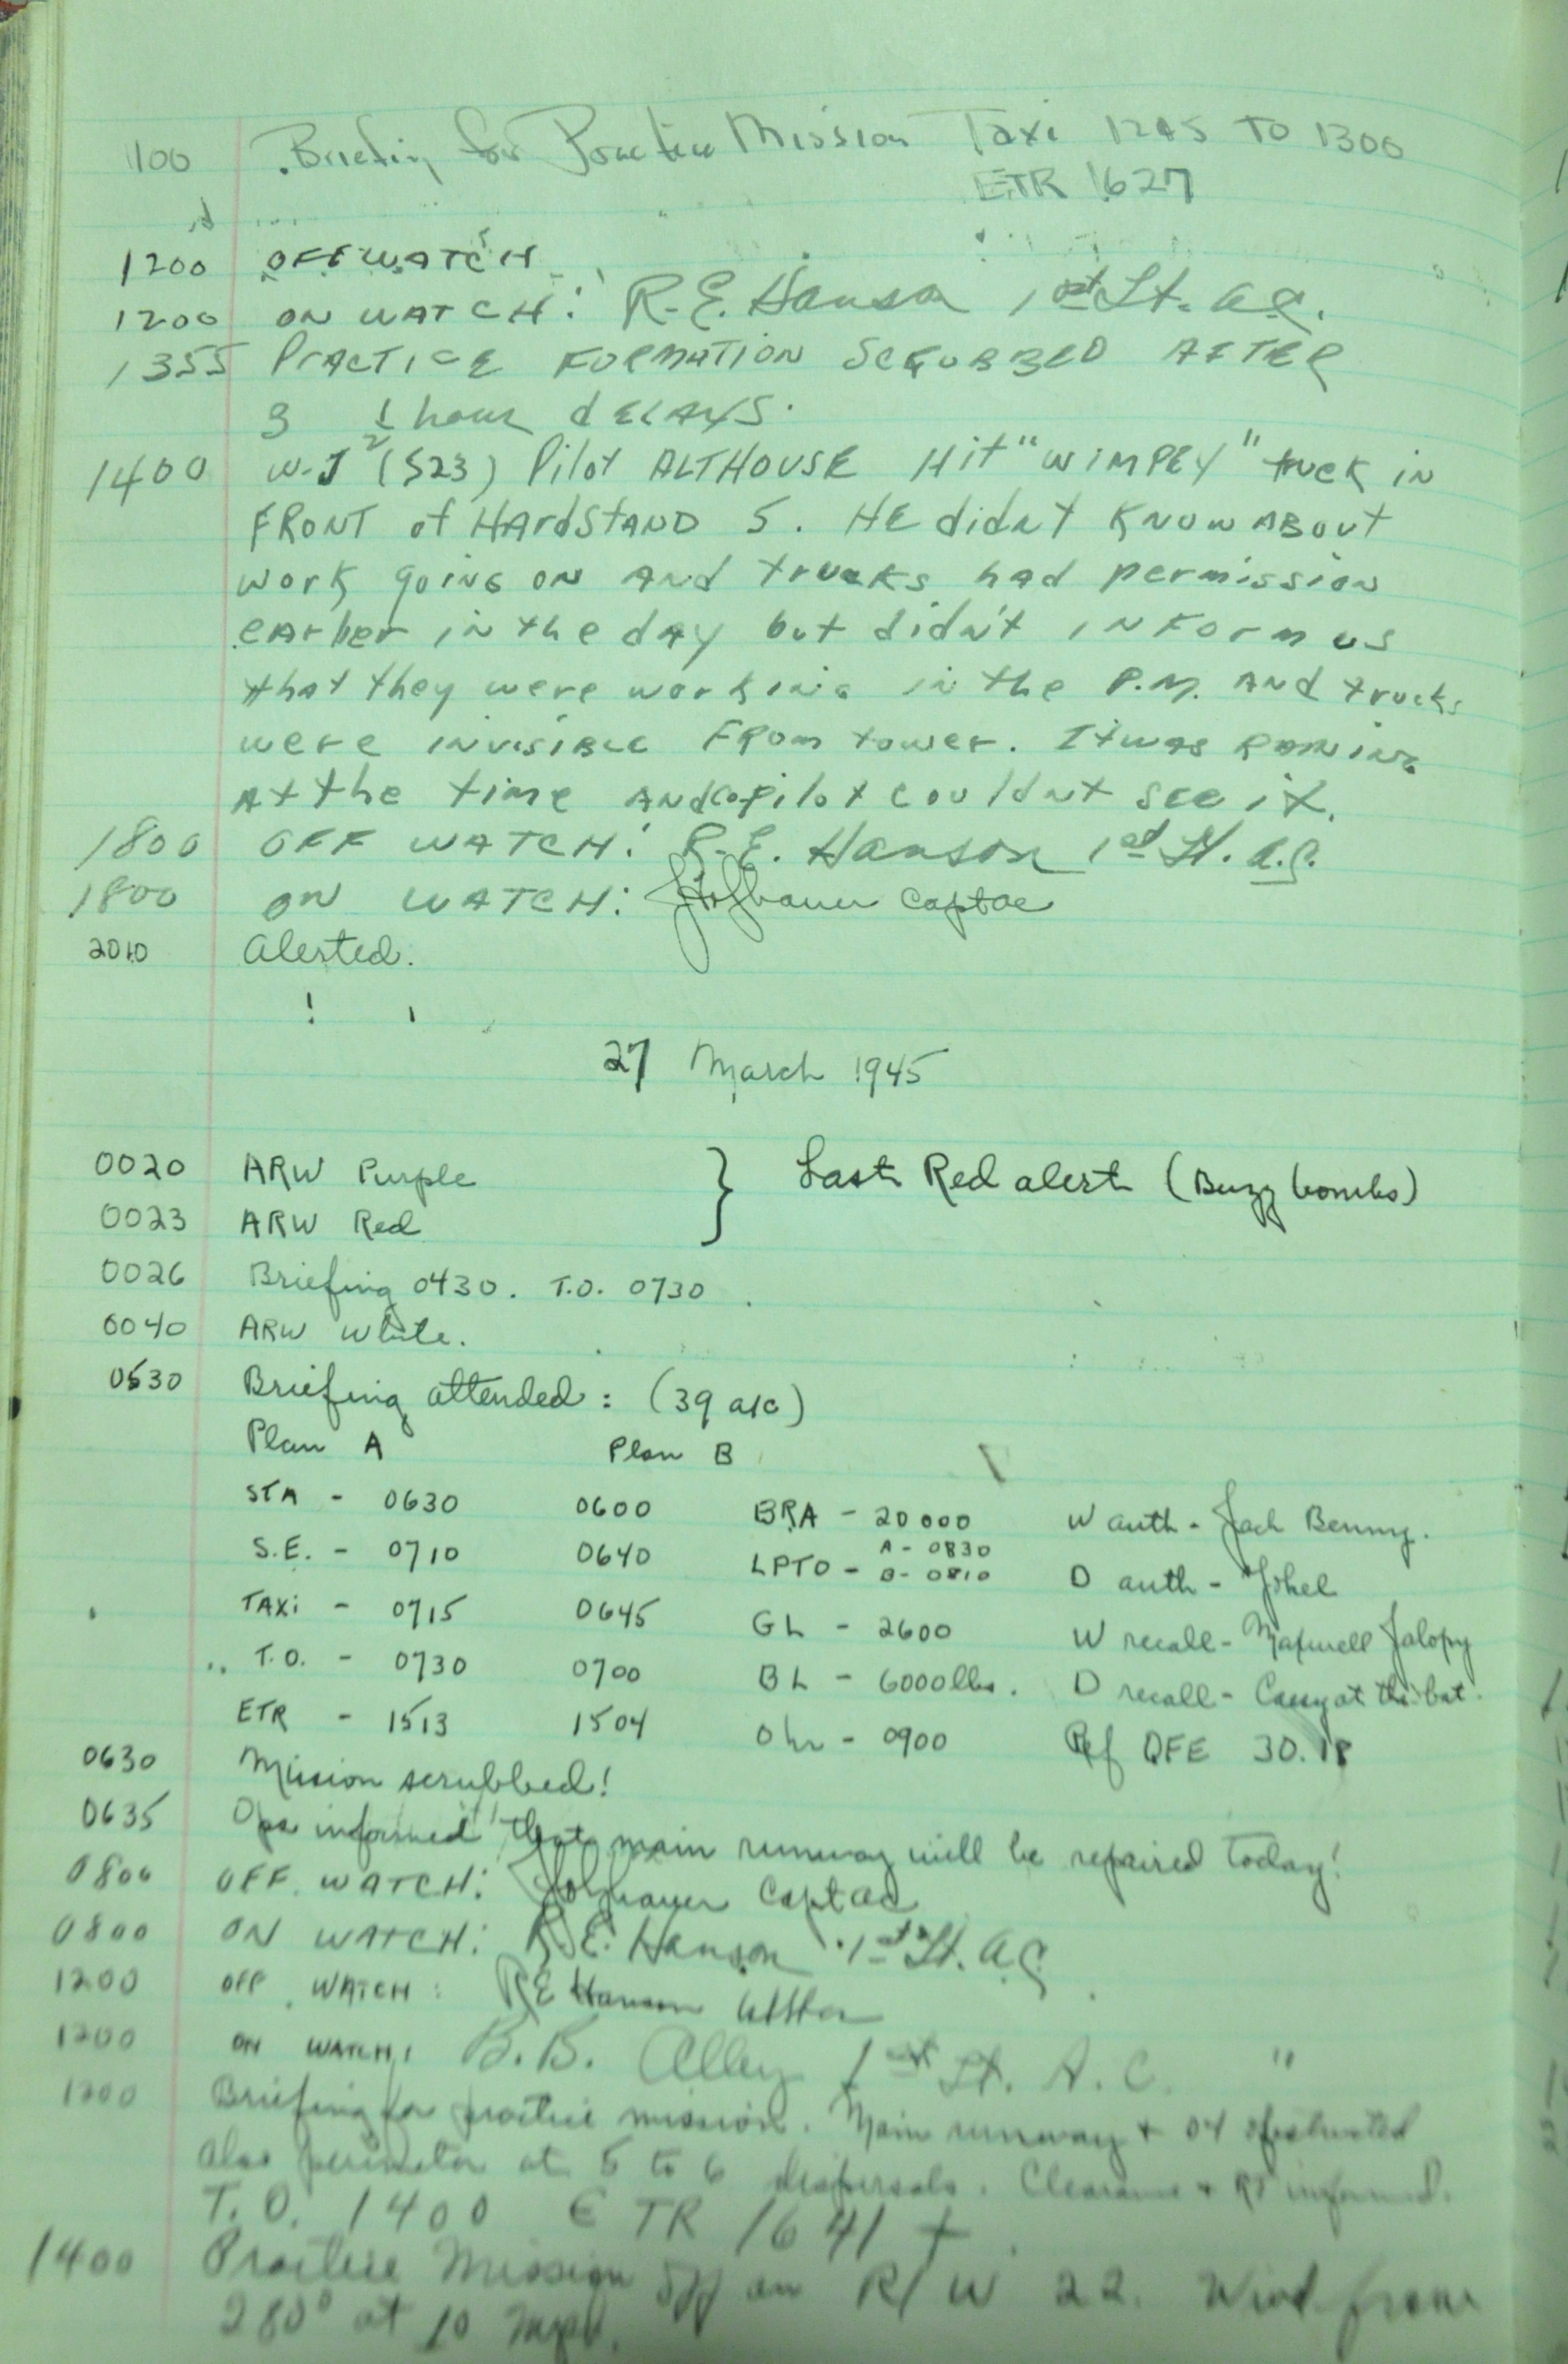 1100 Briefing for Practice Mission Taxi 1245 TO 1300
ETR 1627
1200 OFF WATCH
1200 ON WATCH: R.E. Hanson 1st Lt. A.C.
1355 PRACTICE FORMATION SCRUBBED AFTER
3 ½ hour dELAYS.
1400 W-J (523) Pilot ALTHOUSE Hit "WIMPEY" truck in
FRONT of HArdStAND 5. HE didnt KNOW ABout
work going ON ANd trucks had permission
eArlier in the dAy but didn't INForm us
that they were working in the P.M. ANd trucks
were inVisiBLE FRom tower. It was RAining
At the time ANd copilot couldnt see it.
1800 OFF WATCH: R.E. Hanson 1st Lt. A.C.
1800 ON WATCH: Capt ac
2010 Alerted.
27 March 1945
0020 ARW Purple } Last Red alert (Buzz bombs)
0023 ARW Red
0026 Briefing 0430. T.O. 0730.
0040 ARW White.
0530 Briefing attended: (39 a/c)
Plan A Plan B
STA - 0630 0600 BRA - 20000 W auth - Jack Benny.
S.E. - 0710 0640 LPTO - A - 0830 B - 0810 D auth -
TAXi - 0715 0645 GL - 2600 W recall - Maxwell Jalopy
T.O. - 0730 0700 BL - 6000 lbs. D recall - Casey at the bat.
ETR - 1513 1504 - 0900 Ref QFE 30.18
0630 Mission scrubbed!
0635 Ops informed that main runway will be repaired today!
0800 OFF WATCH: Capt ac
0800 ON WATCH: R.E. Hanson 1st Lt. A.C.
1200 OFF WATCH: RE Hanson
1200 ON WATCH: B.B. Alley 1st Lt. A.C. "
1200 Briefing for practice mission. Main runway + 04 obstructed
also perimeter at 5 to 6 dispersals. Clearance + RT informed.
T.O. 1400 ETR 1641 +.
1400 Practice Mission off on R/W 22. Wind from
280° at 10 mph.